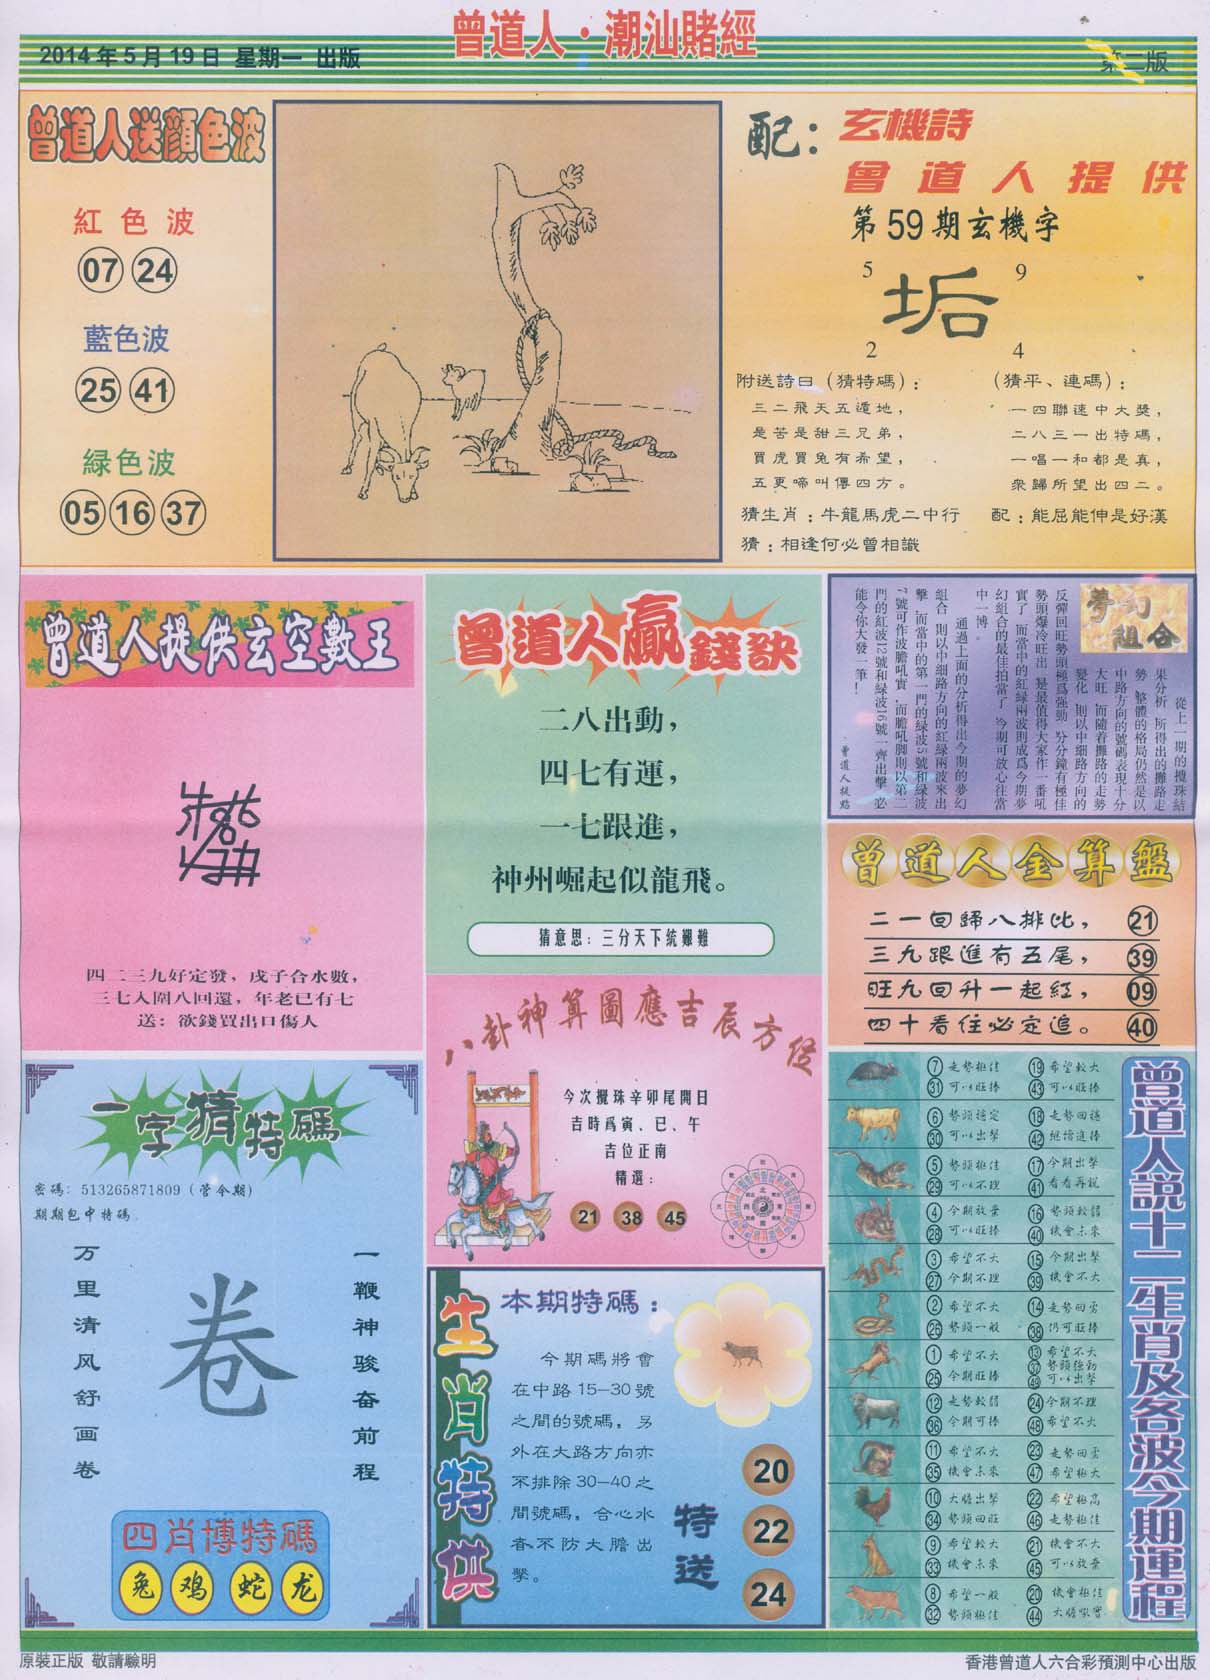 曾道人·潮汕賭經
2014年5月19日 星期一 出版
第二版
曾道人送顏色波
紅色波
07 24
藍色波
25 41
緑色波
05 16 37
配：
玄機詩
曾道人提供
第59期玄機字
5 9
垢
2 4
附送詩曰（猜特碼）：
三二飛天五遁地，
是苦是甜三兄弟，
買虎買兔有希望，
五更啼叫傳四方。
（猜平、連碼）：
一四聯速中大獎，
二八三一出特碼，
一唱一和都是真，
衆歸所望出四二。
猜生肖：牛龍馬虎二中行
配：能屈能伸是好漢
猜：相逢何必曾相識
曾道人提供玄空數王
四二三九好定發，戌子合水數，
三七入圍八回還，年老已有七
送：欲錢買出口傷人
曾道人贏錢訣
二八出動，
四七有運，
一七跟進，
神州崛起似龍飛。
猜意思：三分天下統艱難
夢幻組合
從上一期的攪珠結
果分析，所得出的攤路走
勢，整體的格局仍然是以
中路方向的號碼表現十分
大旺，而隨着攤路的走勢
變化，則以中細路方向的
反彈回旺勢頭極爲强勁，分分鐘有極佳
勢頭爆冷旺出，是最值得大家作一番吼
實了，而當中的紅緑兩波則成爲今期夢
幻組合的最佳拍當了，今期可放心往當
中一博。
通過上面的分析得出今期的夢幻
組合，則以中細路方向的紅緑兩波來出
擊，而當中的第一門的緑波5號和緑波
7號可作波膽吼實，而膽吼脚則以第二
門的紅波12號和緑波16號一齊出擊，必
能令你大發一筆！
曾道人提點
曾道人金算盤
二一回歸八排比， 21
三九跟進有五尾， 39
旺九回升一起紅， 09
四十看住必定追。 40
八卦神算圖應吉辰方位
今次攪珠辛卯尾開日
吉時爲寅、巳、午
吉位正南
精選：
21 38 45
一字猜特碼
密碼：513265871809（管令期）
期期包中特碼
万里清风舒画卷
卷
一鞭神骏奋前程
四肖博特碼
兔 鸡 蛇 龙
生肖特供
本期特碼：
今期碼將會
在中路15—30號
之間的號碼，另
外在大路方向亦
不排除30—40之
間號碼，合心水
者不防大膽出
擊。
特送
20
22
24
曾道人説十二生肖及各波今期運程
7 走勢極佳 19 希望較大
31 可以旺捧 43 可以旺捧
6 勢頭穩定 18 走勢回穩
30 可以出擊 42 繼續追捧
5 勢頭極佳 17 今期出擊
29 可以不理 41 看看再説
4 今期放棄 16 勢頭較弱
28 可以旺捧 40 機會未來
3 希望不大 15 今期出擊
27 今期不理 39 機會不大
2 希望不大 14 走勢回勇
26 勢頭一般 38 仍可旺捧
1 希望不大 13 希望不大
25 今期旺捧 37 勢頭强勁
49 可以出擊
12 走勢較弱 24 今期不理
36 今期可捧 48 希望不大
11 希望不大 23 走勢回勇
35 機會未來 47 希望極大
10 大膽出擊 22 希望極高
34 勢頭回旺 46 走勢極佳
9 希望不大 21 機會不大
33 機會未來 45 可以放棄
8 希望一般 20 機會極佳
32 勢頭極佳 44 大膽吼實
原裝正版 敬請驗明
香港曾道人六合彩預測中心出版